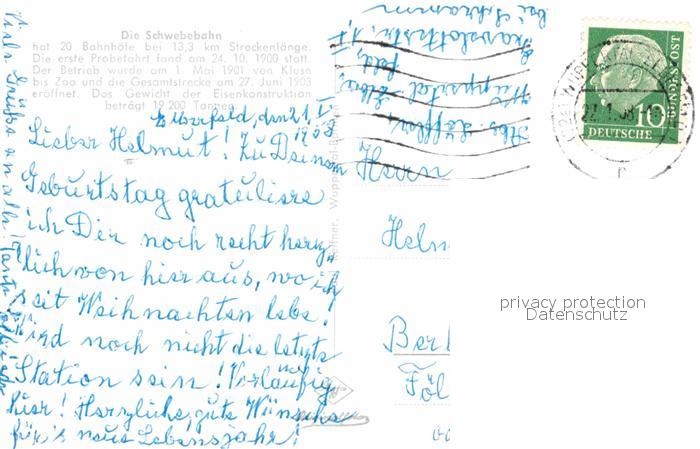 Die Schwebebahn
hat 20 Bahnhöfe bei 13,3 km Streckenlänge.
Die erste Probefahrt fand am 24. 10. 1900 statt.
Der Betrieb wurde am 1. Mai 1901 von Kluse
bis Zoo und die Gesamtstrecke am 27. Juni 1903
eröffnet. Das Gewicht der Eisenkonstruktion
beträgt 19 200 Tonnen.
Elberfeld, den 21. I.
1958
Lieber Helmut! Zu Deinem
Geburtstag gratuliere
ich Dir noch recht herz-
lich von hier aus, wo ich
seit Weihnachten lebe.
Wird noch nicht die letzte
Station sein! Vorläufig
nur
hier! Herzliche, gute Wünsche
für's neue Lebensjahr!
Viele Grüße an alle! Tante
Abs. Löffler,
Wuppertal-Elber-
feld,
str. 17
bei Schramm
Herrn
Helm
Berl
Föl
10
DEUTSCHE
BUNDESPOST
privacy protection
Datenschutz